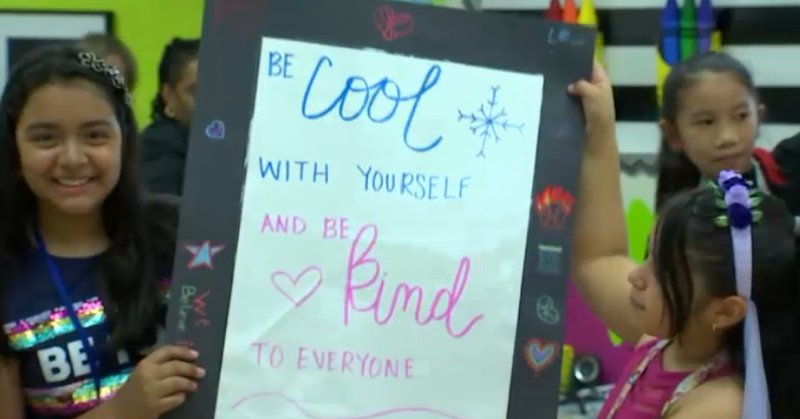 BE cool
WITH YOURSELF
AND BE
kind
TO EVERYONE
We
Believe
BE